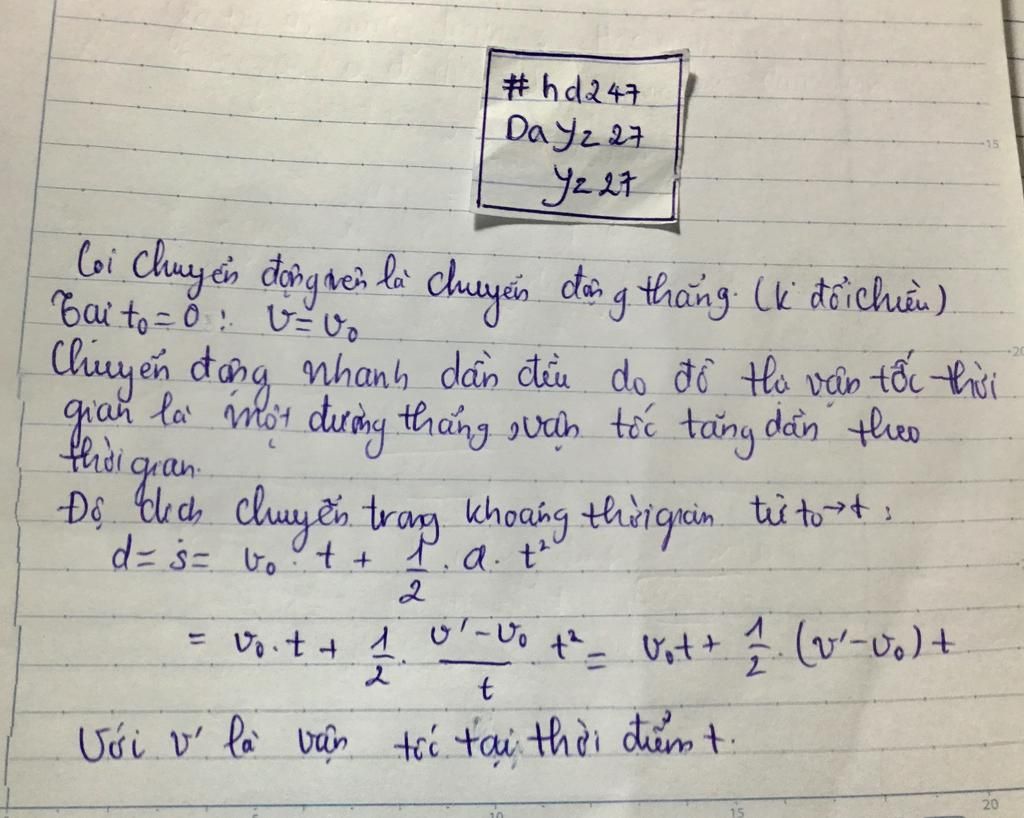 #hd247
Dayz27
yz27
Coi chuyển động trên là chuyển động thẳng. (k đổi chiều)
Tại t₀ = 0 : v = v₀
Chuyển động nhanh dần đều do đồ thị vận tốc thời
gian là một đường thẳng, vận tốc tăng dần theo
thời gian.
Độ dịch chuyển trong khoảng thời gian từ t₀→t :
d = s = v₀ . t + 1/2 . a . t²
= v₀ . t + 1/2 . (v' - v₀)/t t² = v₀t + 1/2 . (v' - v₀) t
Với v' là vận tốc tại thời điểm t.
15
20
5
10
15
20